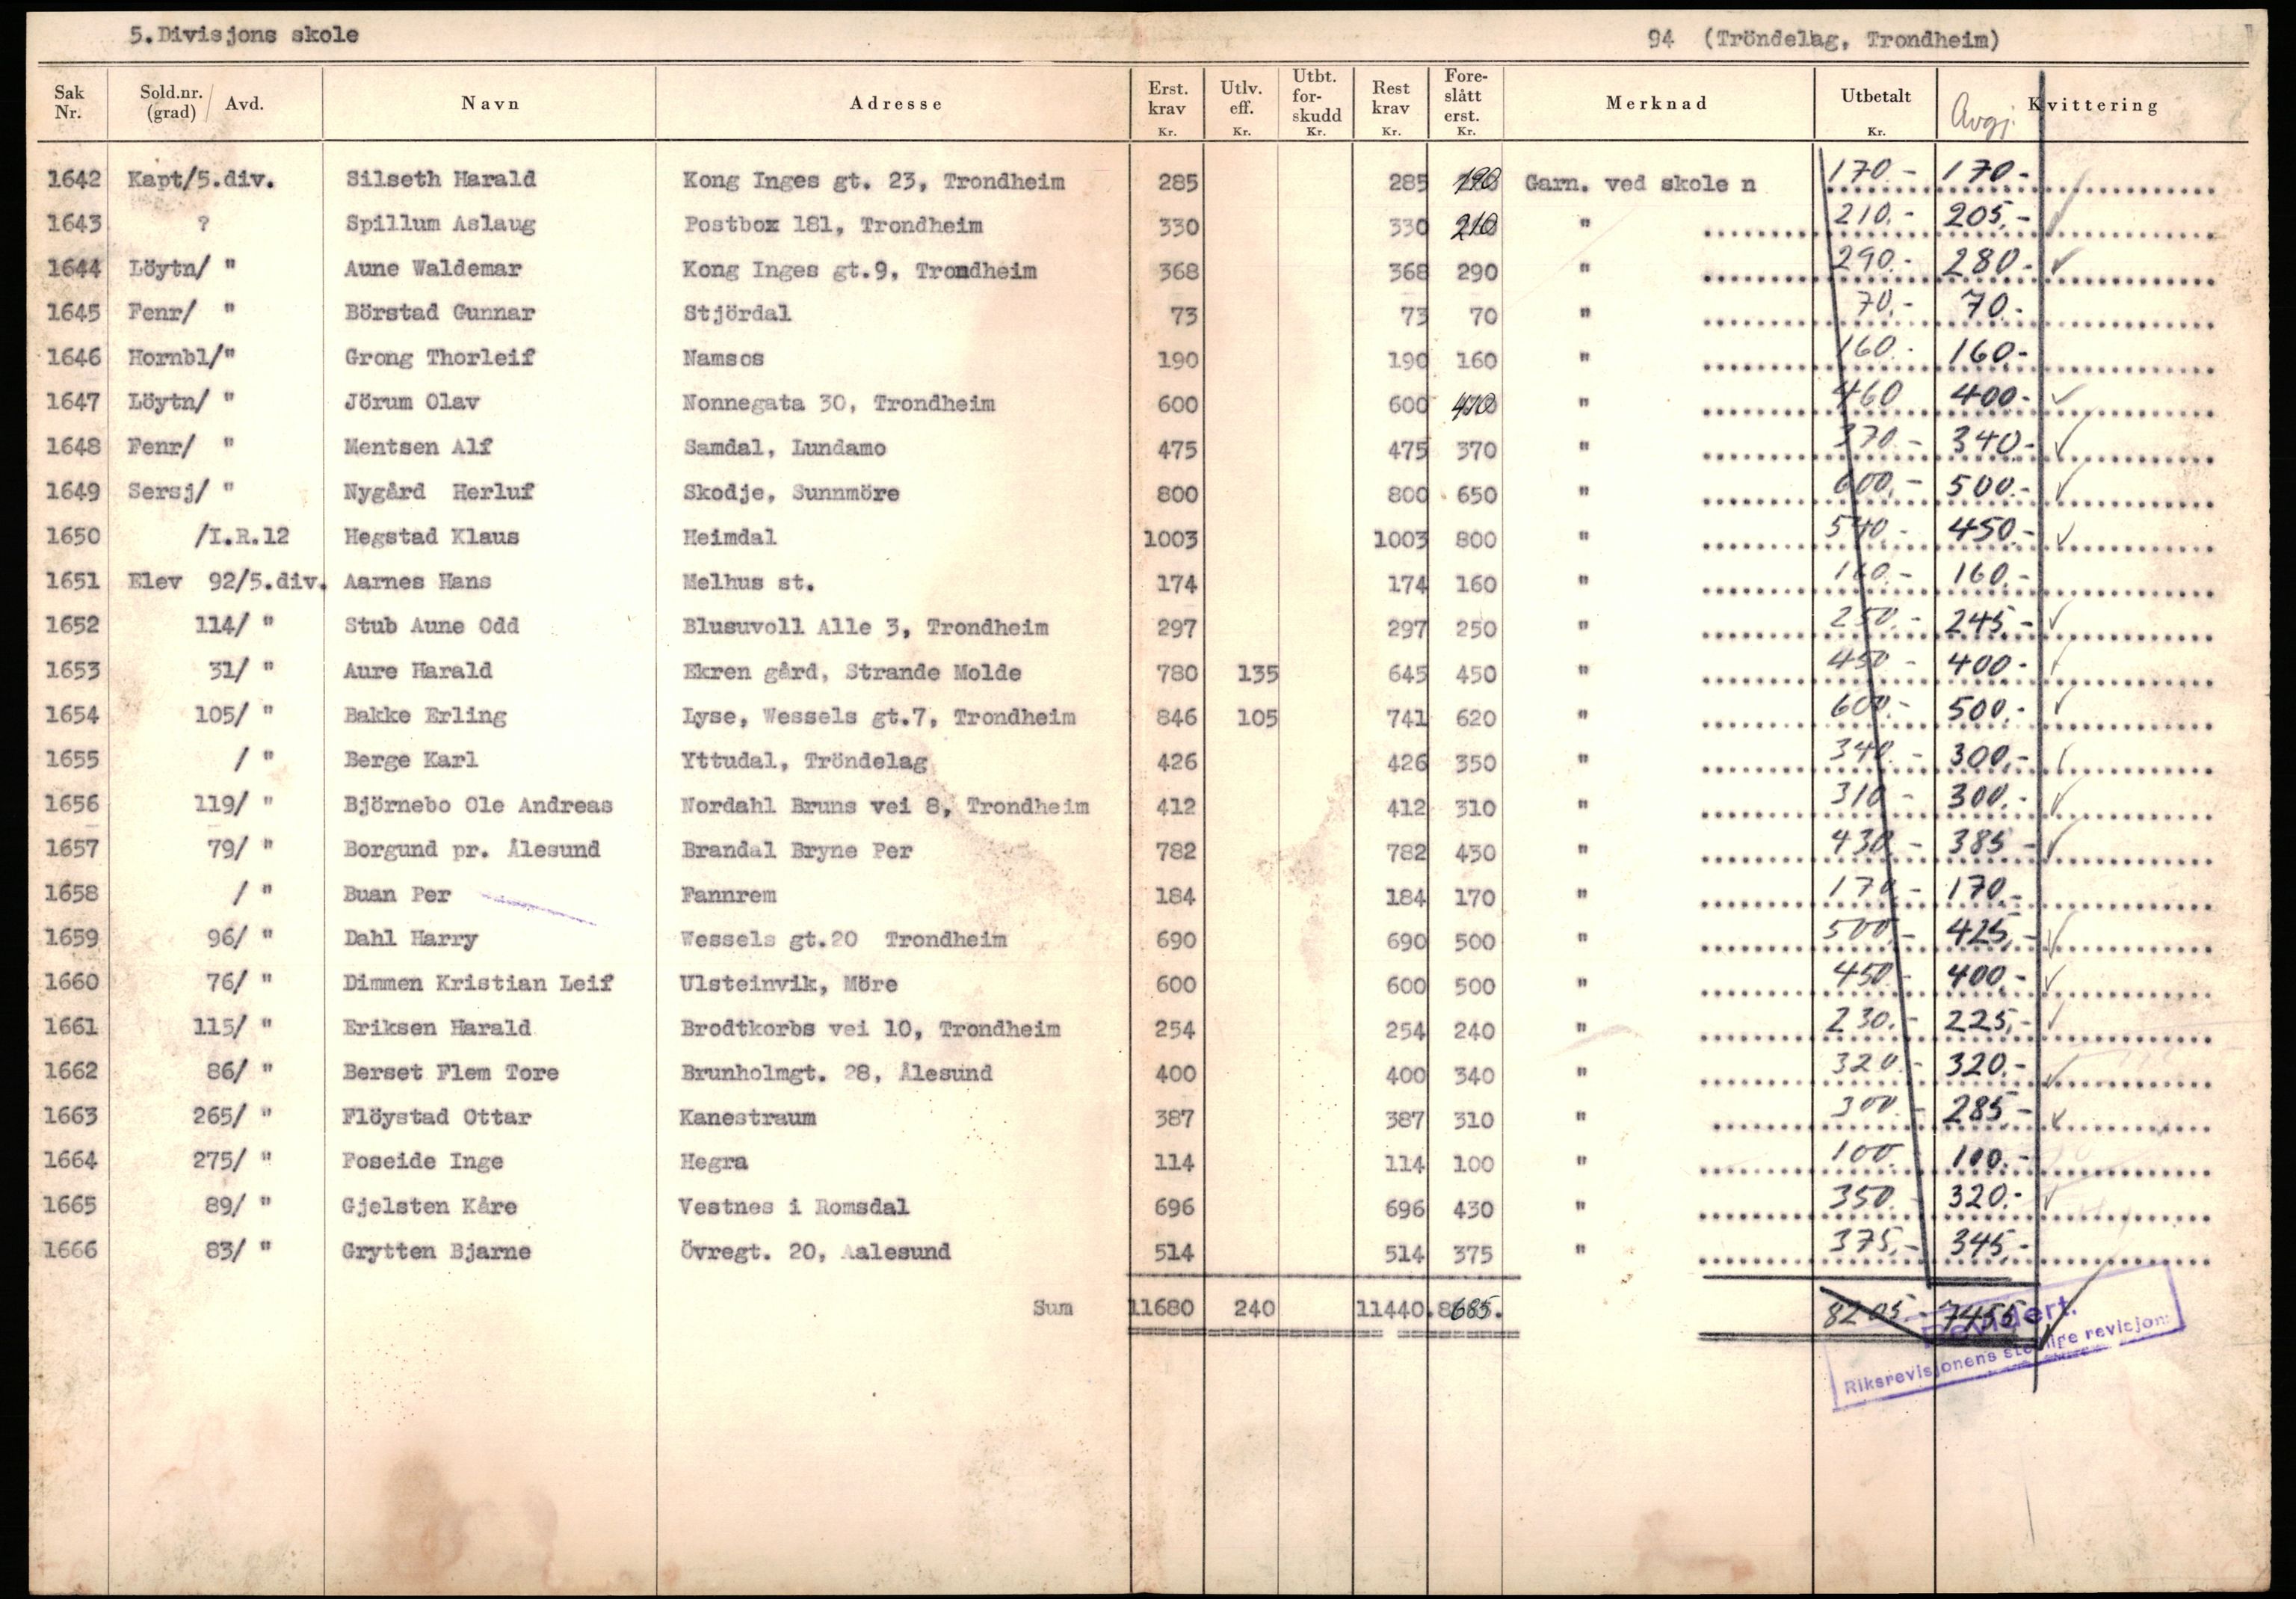 5.Divisjons skole 94 (Tröndelag, Trondheim)
Sak Nr. Sold.nr. (grad) / Avd. Navn Adresse Erst. krav Kr. Utlv. eff. Kr. Utbt. for- skudd Kr. Rest krav Kr. Fore- slått erst. Kr. Merknad Utbetalt Kr. Avgj. Kvittering
1642 Kapt/5.div. Silseth Harald Kong Inges gt. 23, Trondheim 285 285 Garn. ved skole n 170.- 170.-
1643 ? Spillum Aslaug Postbox 181, Trondheim 330 330 210 " 210.- 205.-
1644 Löytn/ " Aune Waldemar Kong Inges gt.9, Trondheim 368 368 290 " 290.- 280.- ✓
1645 Fenr/ " Börstad Gunnar Stjördal 73 73 70 " 70.- 70.-
1646 Hornbl/" Grong Thorleif Namsos 190 190 160 " 160.- 160.-
1647 Löytn/ " Jörum Olav Nonnegata 30, Trondheim 600 600 " 460 400.- ✓
1648 Fenr/ " Mentsen Alf Samdal, Lundamo 475 475 370 " 370.- 340.- ✓
1649 Sersj/ " Nygård Herluf Skodje, Sunnmöre 800 800 650 " 600.- 500.- ✓
1650 /I.R.12 Hegstad Klaus Heimdal 1003 1003 800 " 540.- 450.- ✓
1651 Elev 92/5.div. Aarnes Hans Melhus st. 174 174 160 " 160.- 160.-
1652 114/ " Stub Aune Odd Blusuvoll Alle 3, Trondheim 297 297 250 " 250.- 245.- ✓
1653 31/ " Aure Harald Ekren gård, Strande Molde 780 135 645 450 " 450 - 400.- ✓
1654 105/ " Bakke Erling Lyse, Wessels gt.7, Trondheim 846 105 741 620 " 600.- 500.- ✓
1655 / " Berge Karl Yttudal, Tröndelag 426 426 350 " 340.- 300.- ✓
1656 119/ " Björnebo Ole Andreas Nordahl Bruns vei 8, Trondheim 412 412 310 " 310 - 300.- ✓
1657 79/ " Borgund pr. Ålesund Brandal Bryne Per 782 782 430 " 430 - 385 - ✓
1658 / " Buan Per Fannrem 184 184 170 " 170.- 170.-
1659 96/ " Dahl Harry Wessels gt.20 Trondheim 690 690 500 " 500.- 425.- ✓
1660 76/ " Dimmen Kristian Leif Ulsteinvik, Möre 600 600 500 " 450.- 400.- ✓
1661 115/ " Eriksen Harald Brodtkorbs vei 10, Trondheim 254 254 240 " 230.- 225.- ✓
1662 86/ " Berset Flem Tore Brunholmgt. 28, Ålesund 400 400 340 " 320.- 320.- ✓
1663 265/ " Flöystad Ottar Kanestraum 387 387 310 " 300.- 285.- ✓
1664 275/ " Foseide Inge Hegra 114 114 100 " 100.- 100.-
1665 89/ " Gjelsten Kåre Vestnes i Romsdal 696 696 430 " 350.- 320.- ✓
1666 83/ " Grytten Bjarne Övregt. 20, Aalesund 514 514 375 " 375.- 345.-
Sum 11680 240 11440.8685. 8205 - 7455
Revidert.
Riksrevisjonens stedlige revisjon